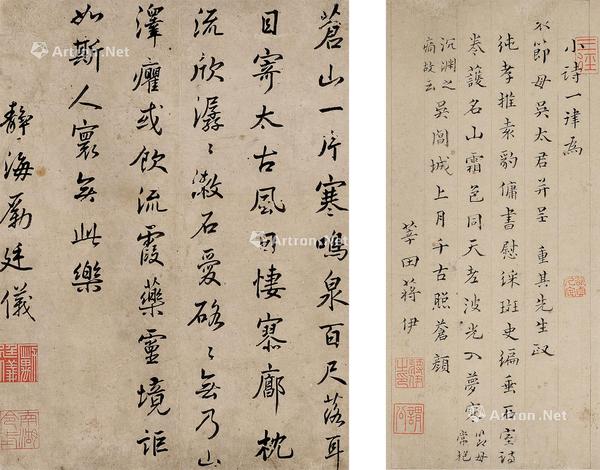 小詩一律為
節母吳太君并呈 重其先生政
純孝推袁豹傭書慰綵斑史編垂石室詩
卷護名山霜色同天老波光入夢寒
母
常抱
沉淵之
痛故云
吳閶城上月千古照蒼顏
莘田蔣伊
蒼山一片寒鳴泉百尺落耳
目寄太古風可悽寥廊枕
流欣潺〻漱石愛硌〻無乃山
澤癯或飲流霞藥靈境詎
如斯人寰無此樂
靜海勵廷儀
Artron.Net
Artron.Net
Artron.Net
Artron.Net
Artron.Net